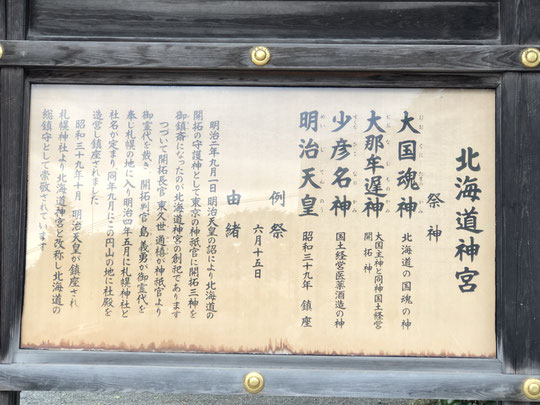 北海道神宮
祭神
おおくにたまのかみ
大国魂神 北海道の国魂の神
おおなむちのかみ
大那牟遅神 大国主神と同神国土経営
開拓神
すくなひこなのかみ
少彦名神 国土経営医薬酒造の神
めいじてんのう
明治天皇 昭和三十九年 鎮座
例祭 六月十五日
由緒
明治二年九月一日明治天皇の詔により北海道の
開拓の守護神として東京の神祇官に開拓三神を
御鎮斎になったのが北海道神宮の創祀であります
つづいて開拓長官 東久世通禧が神祇官より
御霊代を戴き 開拓判官 島 義勇が御霊代を
奉じ札幌の地に入り明治四年五月に札幌神社と
社名が定まり同年九月にこの円山の地に社殿を
造営し鎮座されました
昭和三十九年十月 明治天皇が鎮座され
札幌神社より北海道神宮と改称し北海道の
総鎮守として崇敬されています